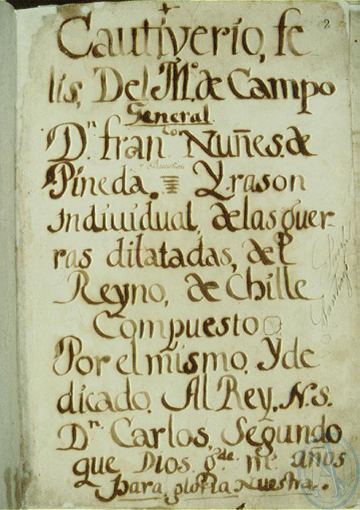 2
Cautiverio, fe
lis, Del M.º de Campo
General
D.n fran.co Nuñes. de
Pineda. Y rason
indiuidual, de las guer
ras dilatadas, del
Reyno, de Chille
Compuesto
Por el mismo. Y de
dicado. Al Rey. N. s.
D.n Carlos, Segundo
que Dios g.de m.s años
Para, gloria Nuestra.